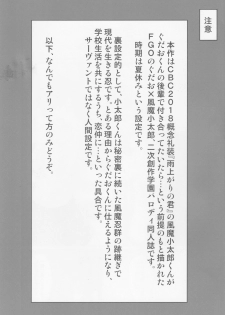 注意
本作はCBC2018概念礼装、『雨上がりの君』の風魔小太郎くんが
ぐだおくんの後輩で付き合ってたいたら…という前提のもと描かれた
FGOのぐだお×風魔小太郎、二次創作学園パロディ同人誌です。
時期は夏休みという設定です。
裏設定的として、小太郎くんは秘密裏に続いた風魔忍群の跡継ぎで
現代を生きる忍です、とある理由からぐだおくんに仕えるようになり、
学校生活を共にするうち、恋仲に…といった具合です。
サーヴァントではなく人間設定です。
以下、なんでもアリって方のみどうぞ。